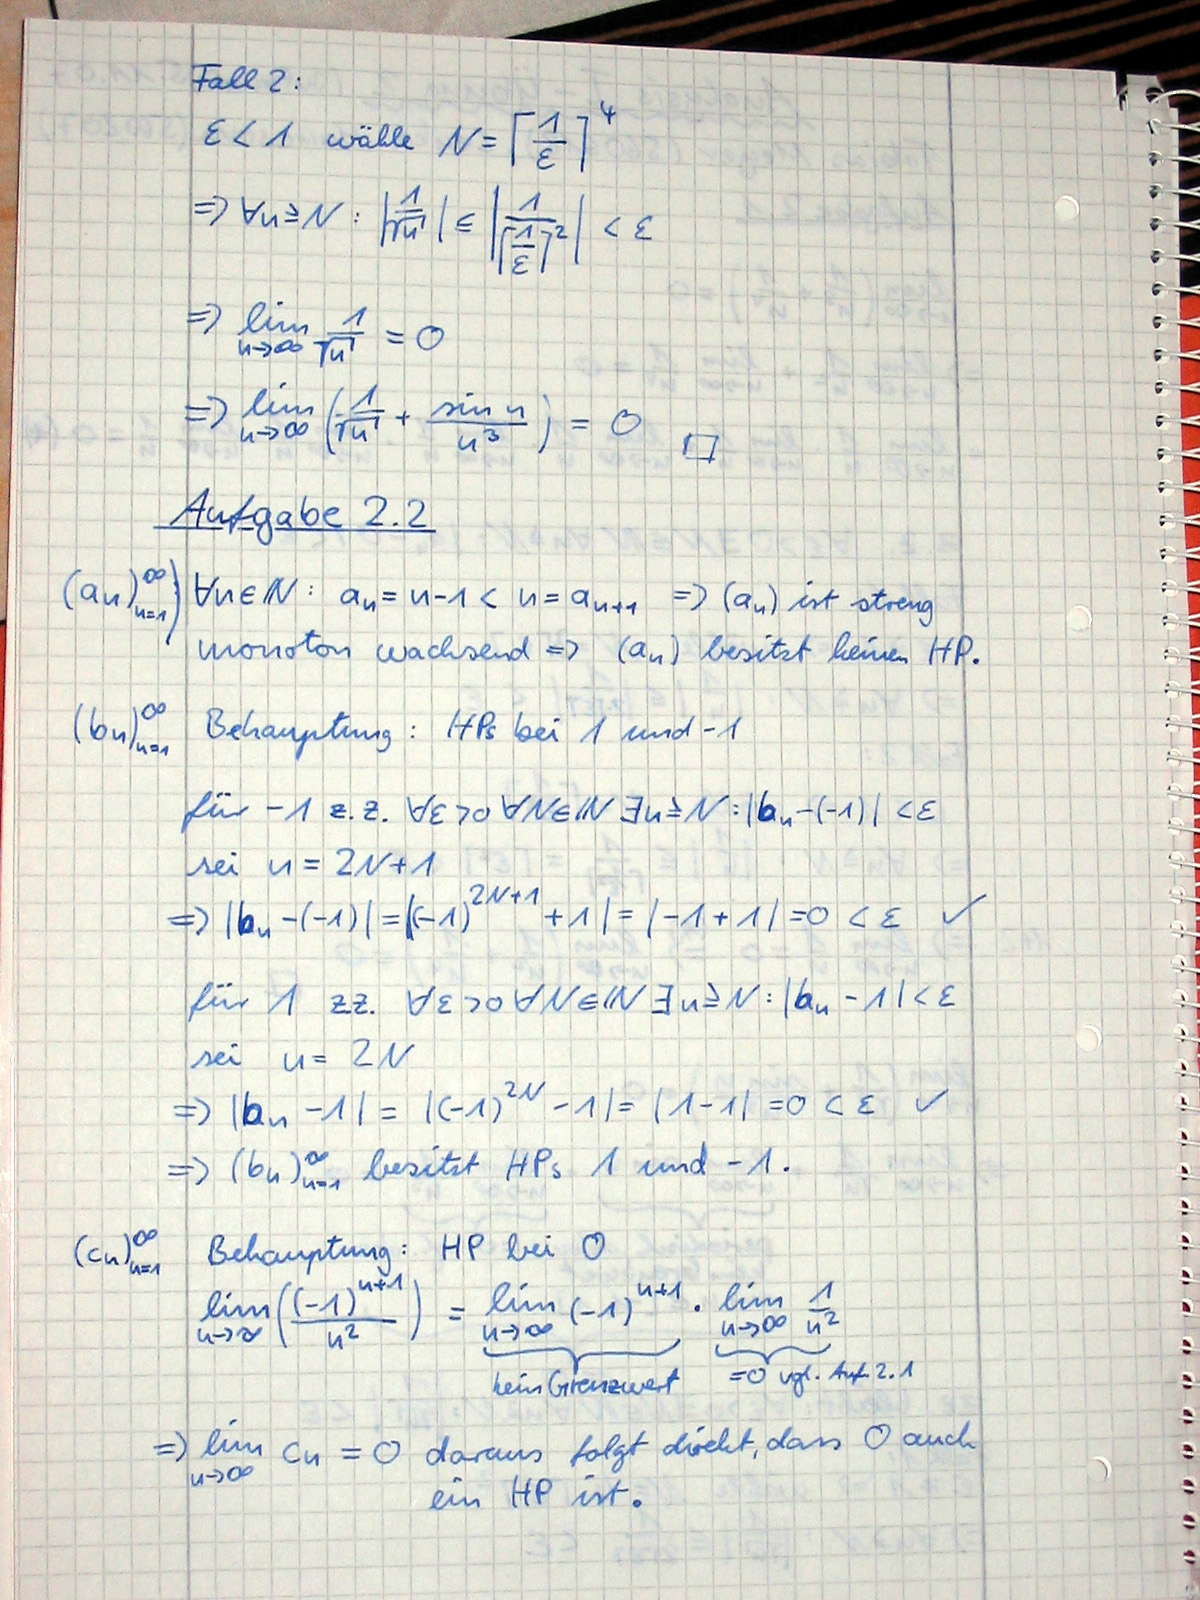 Fall 2:
ε < 1 wähle N = ⌈1/ε⌉^4
⇒ ∀n≥N : |1/√n| ≤ |1/⌈1/ε⌉²| < ε
⇒ lim n→∞ 1/√n = 0
⇒ lim n→∞ (1/√n + sin n/n³) = 0 □
Aufgabe 2.2
(an)∞n=1) ∀n∈ℕ: an = n-1 < n = an+1 ⇒ (an) ist streng
monoton wachsend ⇒ (an) besitzt keinen HP.
(bn)∞n=1 Behauptung: HPs bei 1 und -1
für -1 z.z. ∀ε>0 ∀N∈ℕ ∃n≥N: |bn-(-1)| < ε
sei n = 2N+1
⇒ |bn-(-1)| = |(-1)^2N+1 + 1| = |-1+1| = 0 < ε ✓
für 1 zz. ∀ε>0 ∀N∈ℕ ∃n≥N: |bn - 1| < ε
sei n = 2N
⇒ |bn - 1| = |(-1)^2N - 1| = |1-1| = 0 < ε ✓
⇒ (bn)∞n=1 besitzt HPs 1 und -1.
(cn)∞n=1 Behauptung: HP bei 0
lim n→∞ ((-1)^n+1/n²) = lim n→∞ (-1)^n+1 · lim n→∞ 1/n²
kein Grenzwert =0 vgl. Auf. 2.1
⇒ lim n→∞ cn = 0 daraus folgt direkt, dass 0 auch
ein HP ist.